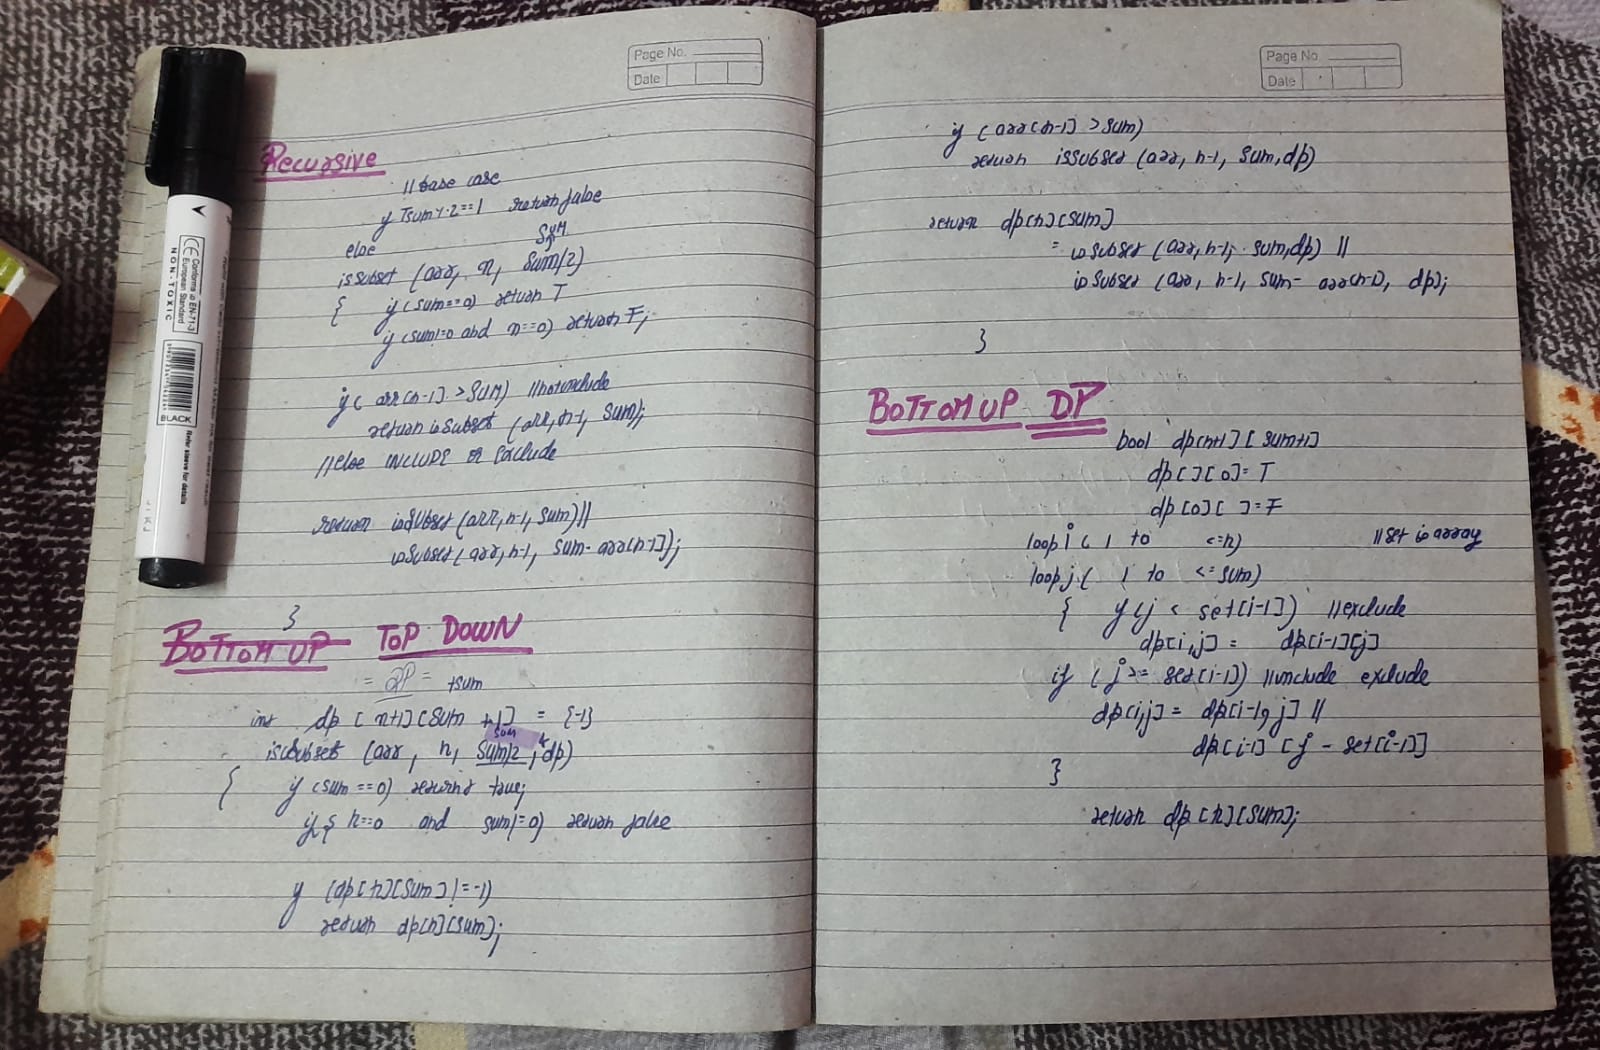 Page No.
Date
Recursive
// base case
if sum%2==1 return false
else
SUM
issubset (arr, n, Sum/2)
{ if (sum==0) return T
if (sum!=0 and n==0) return F;
if ( arr[n-1] > SUM) // not include
return issubset (arr, n-1, sum);
// else INCLUDE or Exclude
return isSubset (arr, n-1, sum) ||
isSubset (arr, n-1, sum- arr[n-1]);
}
BOTTOM UP TOP DOWN
= DP = +sum
int dp [ n+1] [Sum +1] = {-1}
sum
issubset (arr, n, Sum/2, dp)
{ if (sum ==0) return true;
if n==0 and sum!=0) return false
if (dp[n][sum] != -1)
return dp[n][sum];
CE Conforms to EN-71-3
European Standard
NON-TOXIC
BLACK
Refer sleeve for details
Page No.
Date
if (arr[n-1] > sum)
return issubset (arr, n-1, sum, dp)
return dp[n][sum]
= isSubset (arr, n-1, sum, dp) ||
isSubset (arr, n-1, sum- arr[n-1], dp);
}
BOTTOM UP DP
bool dp[n+1] [ sum+1]
dp[ ][ 0]= T
dp [0][ ] = F
loop i ( 1 to <=n) // set is array
loop j ( 1 to <= sum)
{ if (j < set[i-1]) // exclude
dp[i,j] = dp[i-1][j]
if (j >= set[i-1]) // include exclude
dp[i,j] = dp[i-1, j] ||
dp[i-1] [j - set[i-1]]
}
return dp [n][sum];